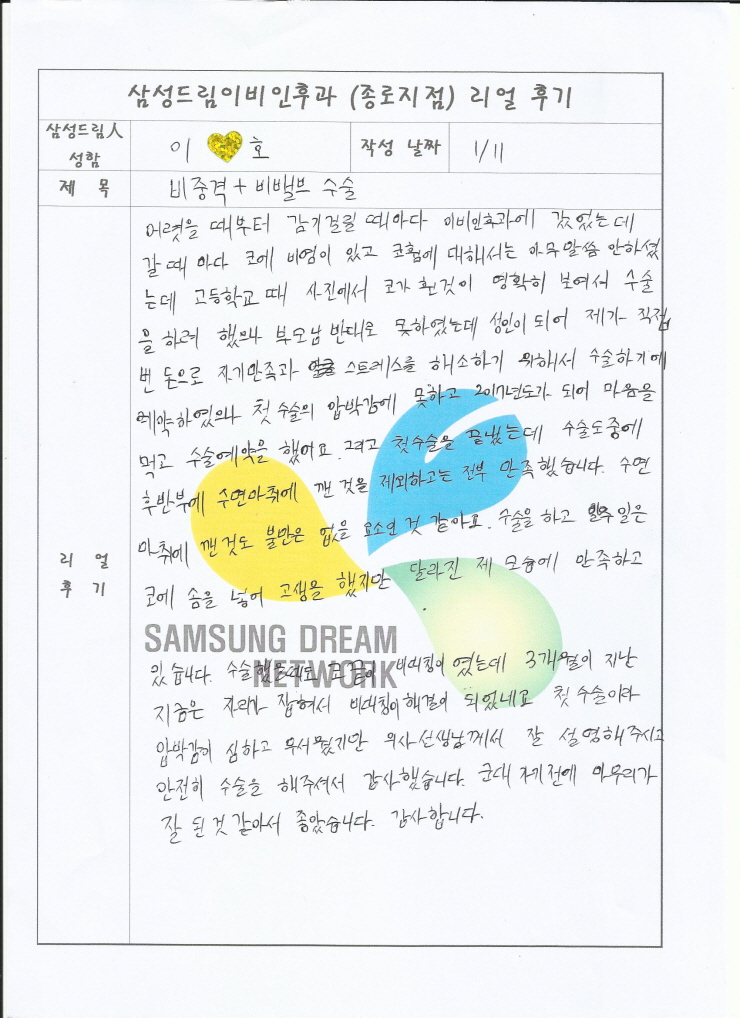 삼성드림이비인후과 (종로지점) 리얼 후기
삼성드림人 성함
이 호
작성 날짜
1/11
제 목
비중격 + 비밸브 수술
리 얼
후 기
어렸을 때부터 감기걸릴 때마다 이비인후과에 갔었는데
갈 때 마다 코에 비염이 있고 코휨에 대해서는 아무말씀 안하셨
는데 고등학교 때 사진에서 코가 휜것이 명확히 보여서 수술
을 하려 했으나 부모님 반대로 못하였는데 성인이 되어 제가 직접
번 돈으로 자기만족과 스트레스를 해소하기 위해서 수술하기에
예약하였으나 첫 수술의 압박감에 못하고 2017년도가 되어 마음을
먹고 수술예약을 했어요. 그리고 첫수술을 끝냈는데 수술도중에
후반부에 수면마취에 깬 것을 제외하고는 전부 만족했습니다. 수면
마취에 깬것도 불만은 없을 요소인 것 같아요. 수술을 하고 일은
코에 솜을 넣어 고생을 했지만 달라진 제 모습에 만족하고
있습니다. 수술했을때도 코끝이 비대칭이였는데 3개월이 지난
지금은 자리가 잡혀서 비대칭이해결이 되었네요 첫 수술이라
압박감이 심하고 무서웠지만 의사선생님께서 잘 설명해주시고
안전히 수술을 해주셔서 감사했습니다. 군대 가기전에 마무리가
잘 된 것 같아서 좋았습니다. 감사합니다.
SAMSUNG DREAM
NETWORK